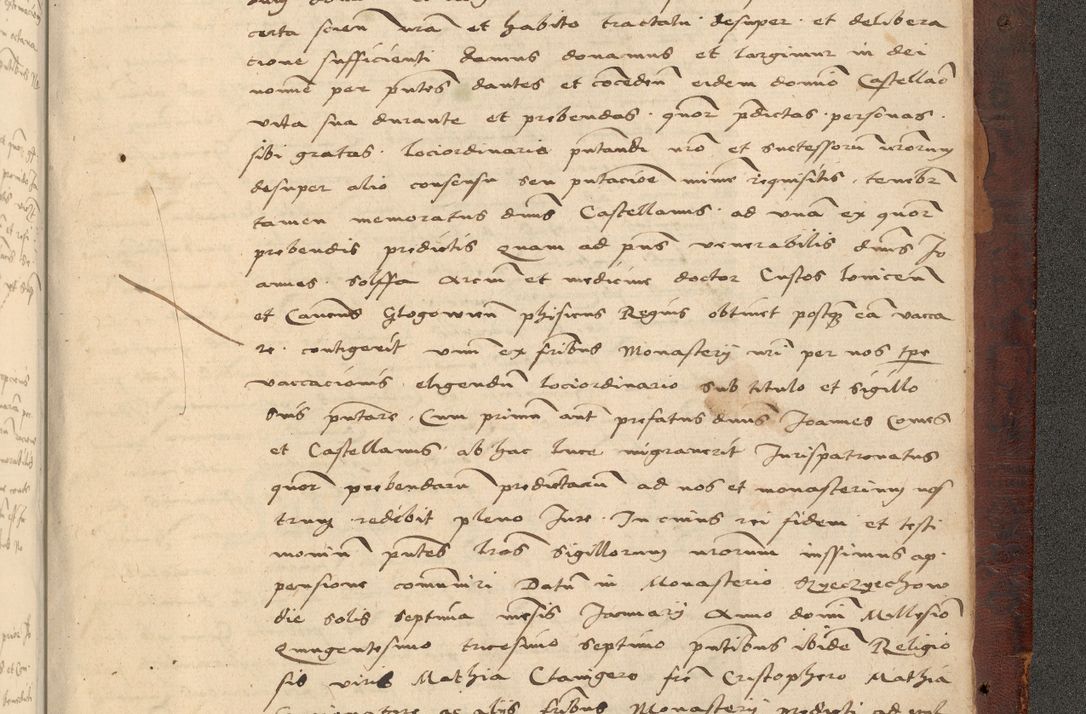 certa scien nrã et habito tractatu desuper et delibera
cione sufficienti damus donamus et largimur in dei
nomine per pñtes dantes et cõcedeñ eidem domino Castellaõ
vita sua durante et prebendas quor pdictas personas
sibi gratas lociordinario pñtandi nro et successorum nrorum
desuper alio consensu seu pñtacioe minime requisitis tenebr
tamen memoratus dñus Castellanus ad vnã ex quor
prebendis predictis Quam ad pñs venerabilis dñus Jo
annes Solffa Arciũ et medicine doctor Custos
et Canoñs Glogowieñ phisicus Regius obtinet postq̃ eã vacca
re contigerit vnũ ex fribus Monasterij nri per nos tpe
vaccacionis eligendũ lociordinario sub titulo et sigillo
suis pñtare Cum primũ aut prefatus dñus Joannes Comes
et Castellanus ab hac luce migrauerit Jurispatronatus
quor prebendarũ predictarũ ad nos et monasterium nos
trum redibit pleno Jure In cuius rei fidem et testi
moniũ pñtes lras sigillorum nrorum iussimus ap
pensione comuniri Datũ in Monasterio Szyeczyechow
die solis septima mẽsis Januarij Anno domini Millesiõ
Quingentesimo tricesimo septimo pñtibus ibidẽ Religio
sis viris Mathia Clauigero frẽ Cristophero Mathia
ac alijs fribus Monasterij predicti